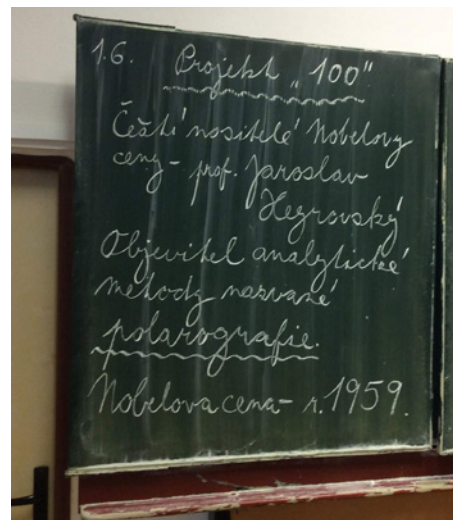 1.6. Projekt „100"
Čeští nositelé Nobelovy
ceny - prof. Jaroslav
Heyrovský
Objevitel analytické
metody nazvané
polarografie.
Nobelova cena - r. 1959.